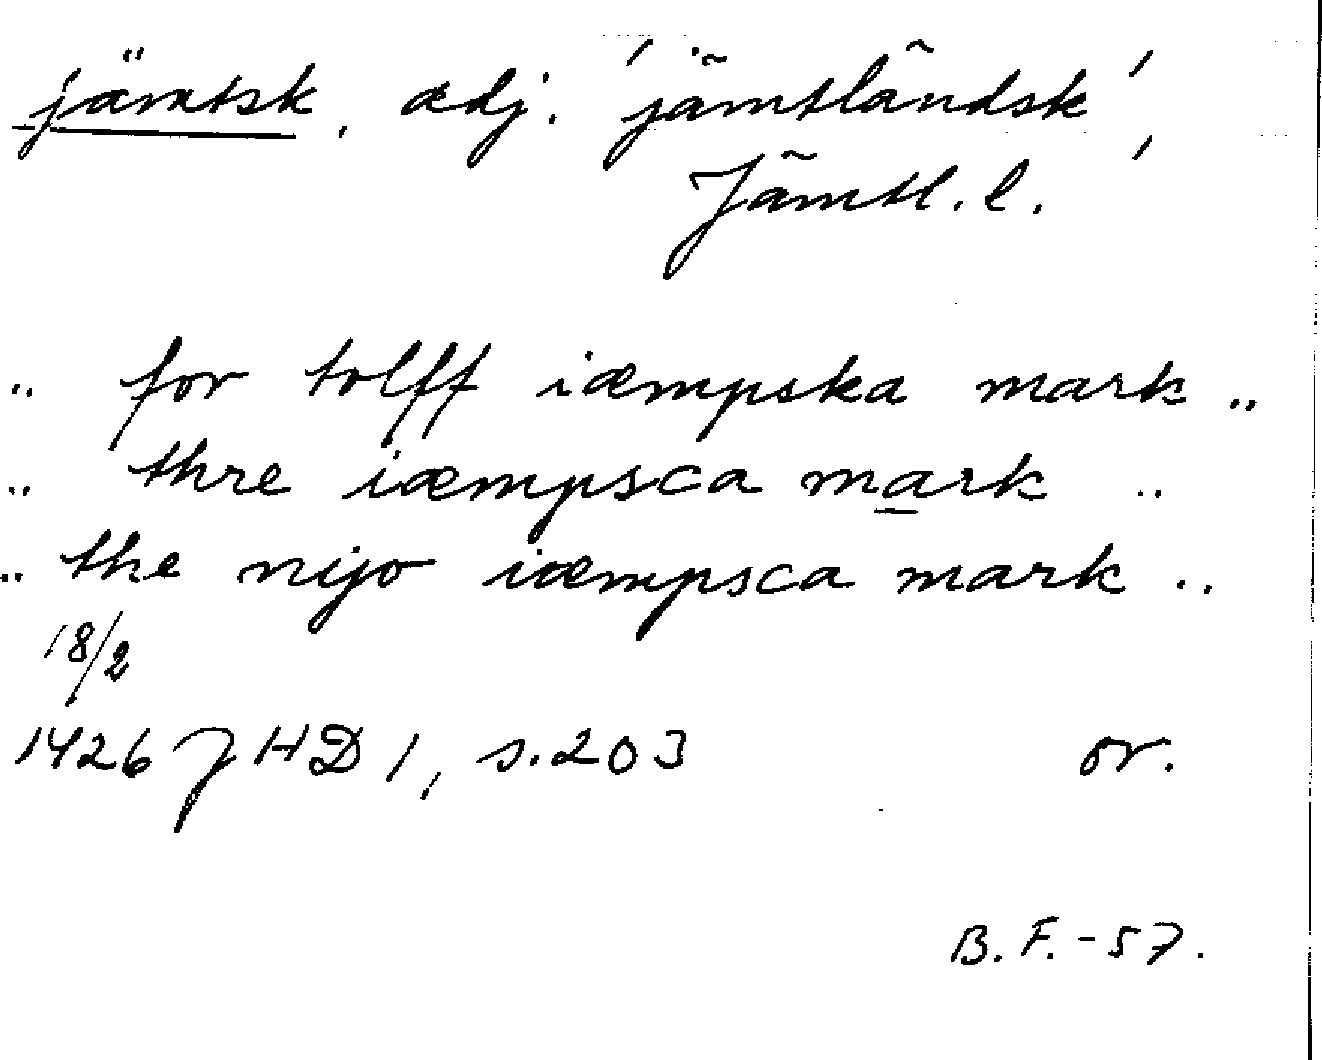 jämtsk, adj. 'jämtländsk',
Jämtl. l.
.. for tolff iæmpska mark ..
.. thre iæmpsca mark ..
.. the nijo iæmpsca mark ..
18/2
1426 JHD 1, s. 203 or.
B. F. - 57.